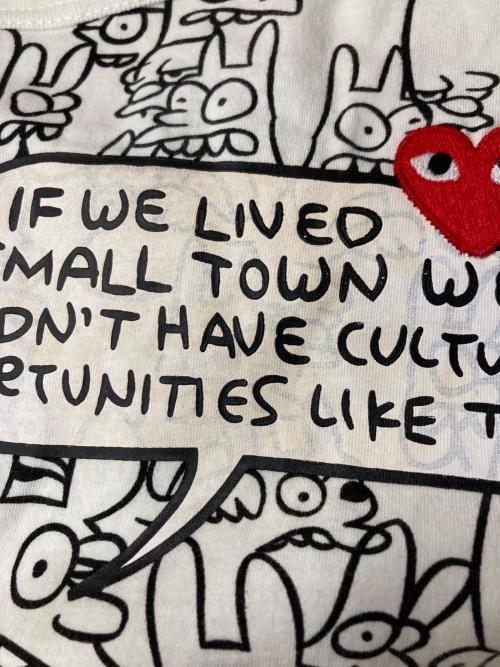 IF WE LIVED
SMALL TOWN WE
DN'T HAVE CULTU
RTUNITIES LIKE T